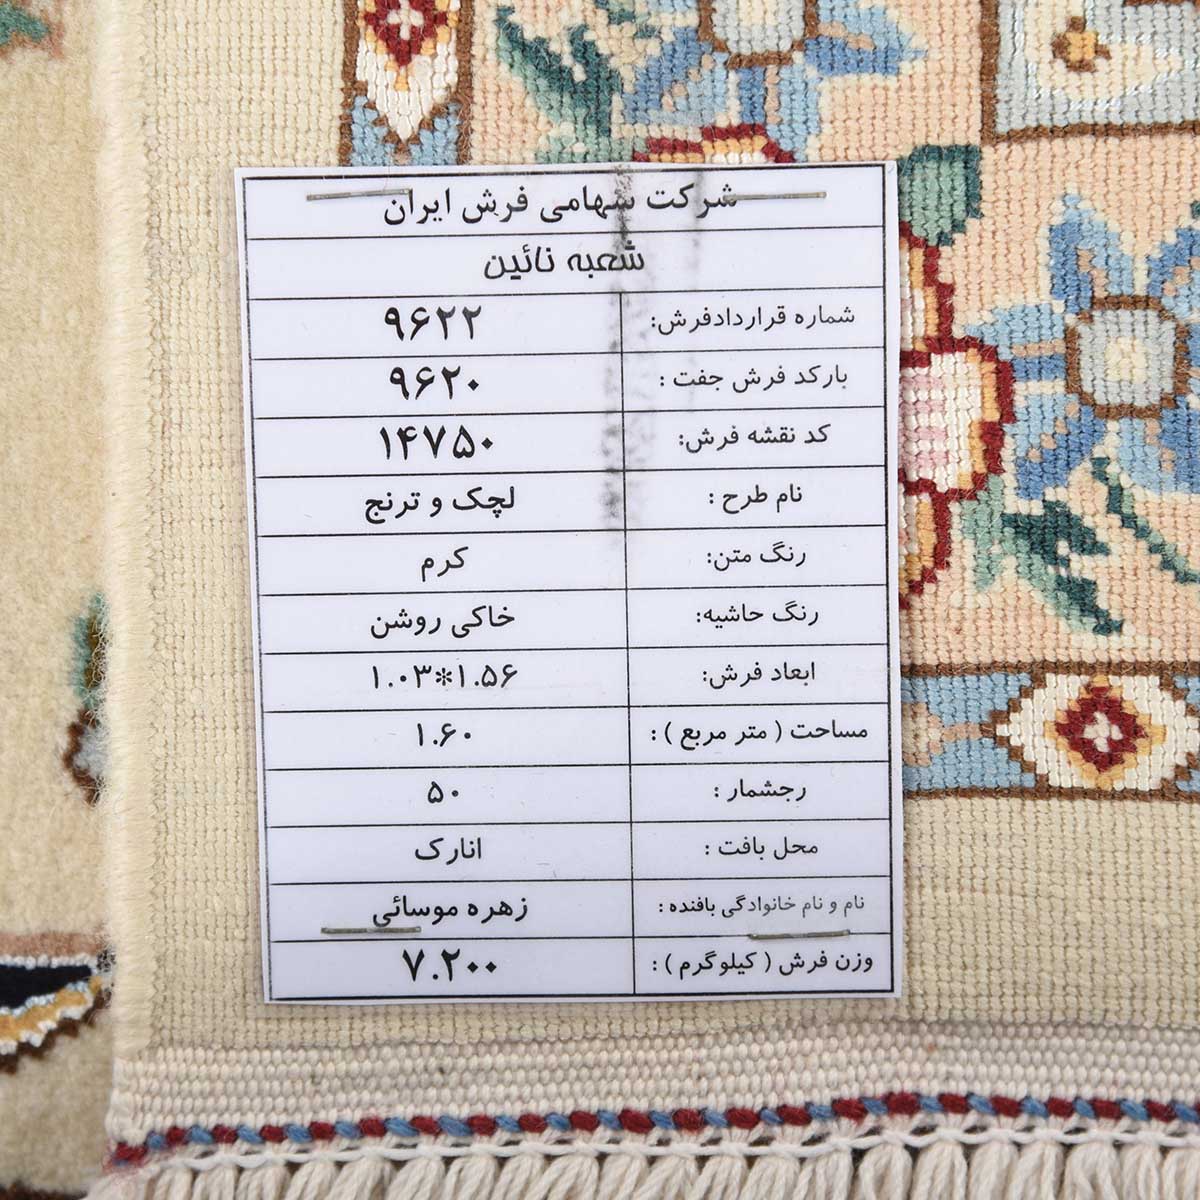 شرکت سهامی فرش ایران
شعبه نائین
شماره قراردادفرش: ۹۶۲۲
بارکد فرش جفت : ۹۶۲۰
کد نقشه فرش: ۱۴۷۵۰
نام طرح : لچک و ترنج
رنگ متن: کرم
رنگ حاشیه: خاکی روشن
ابعاد فرش: ۱.۰۳*۱.۵۶
مساحت ( متر مربع ) : ۱.۶۰
رجشمار : ۵۰
محل بافت : انارک
نام و نام خانوادگی بافنده : زهره موسائی
وزن فرش ( کیلوگرم ) : ۷.۲۰۰